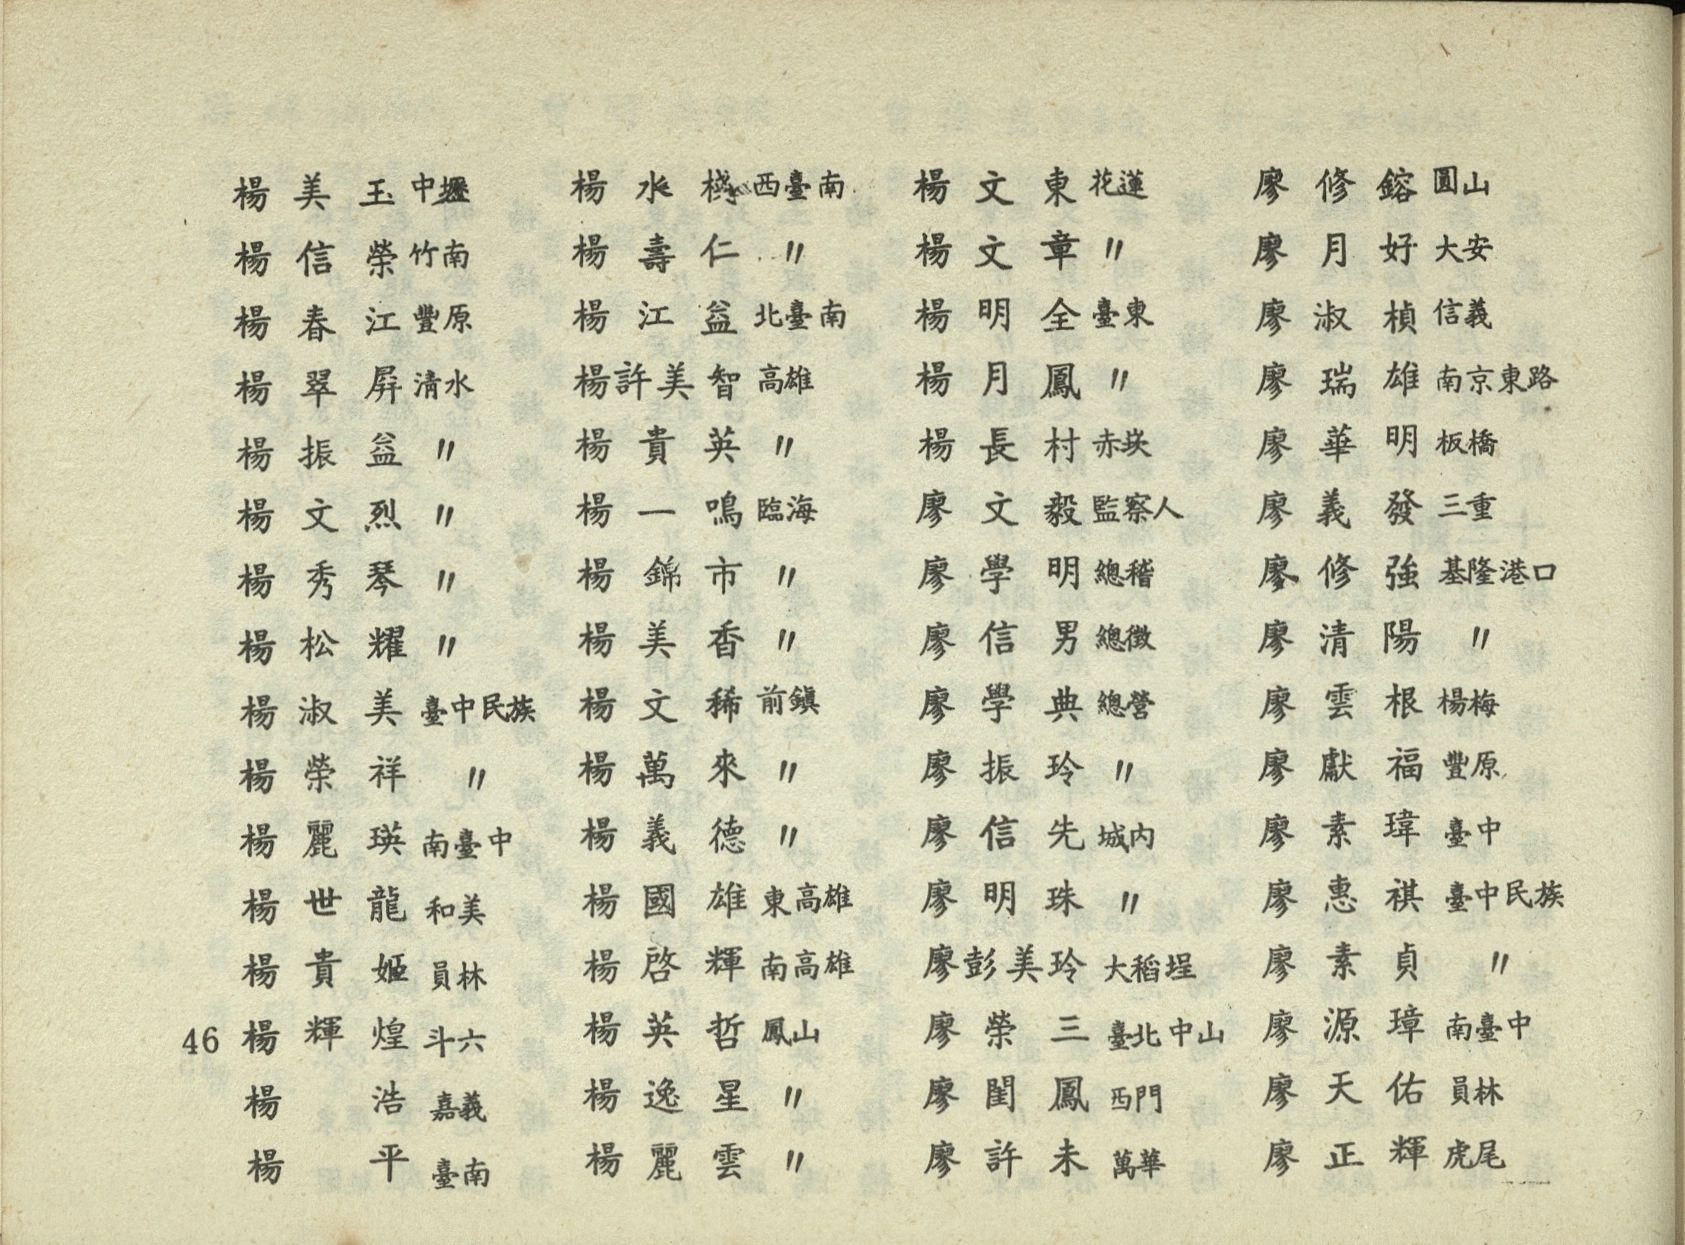 楊美玉 中壢
楊信榮 竹南
楊春江 豐原
楊翠屏 清水
楊振益 〃
楊文烈 〃
楊秀琴 〃
楊松耀 〃
楊淑美 臺中民族
楊榮祥 〃
楊麗瑛 南臺中
楊世龍 和美
楊貴姬 員林
楊輝煌 斗六
楊浩 嘉義
楊平 臺南
46
楊水 西臺南
楊壽仁 〃
楊江益 北臺南
楊許美智 高雄
楊貴英 〃
楊一鳴 臨海
楊錦市 〃
楊美香 〃
楊文稀 前鎮
楊萬來 〃
楊義德 〃
楊國雄 東高雄
楊啓輝 南高雄
楊英哲 鳳山
楊逸星 〃
楊麗雲 〃
楊文東 花蓮
楊文章 〃
楊明全 臺東
楊月鳳 〃
楊長村 赤崁
廖文毅 監察人
廖學明 總稽
廖信男 總徵
廖學典 總營
廖振玲 〃
廖信先 城內
廖明珠 〃
廖彭美玲 大稻埕
廖榮三 臺北中山
廖閨鳳 西門
廖許未 萬華
廖修鎔 圓山
廖月好 大安
廖淑楨 信義
廖瑞雄 南京東路
廖華明 板橋
廖義發 三重
廖修強 基隆港口
廖清陽 〃
廖雲根 楊梅
廖獻福 豐原
廖素瑋 臺中
廖惠祺 臺中民族
廖素貞 〃
廖源璋 南臺中
廖天佑 員林
廖正輝 虎尾